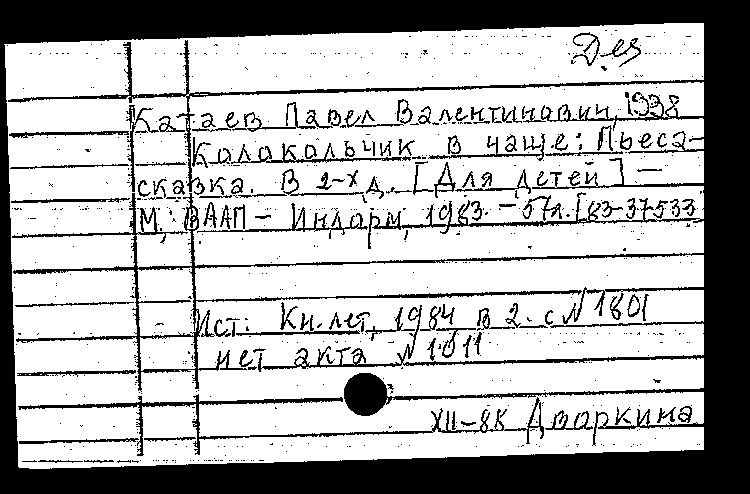 Дез
Катаев Павел Валентинович, 1938
Колокольчик в чаще: Пьеса-
сказка. В 2-х д. [Для детей] —
М.: ВААП - Информ, 1983. - 57л. [83-37533
Ист: Кн. лет, 1984 в 2. с N 1801
нет акта N 1011
XII-8К Дворкина